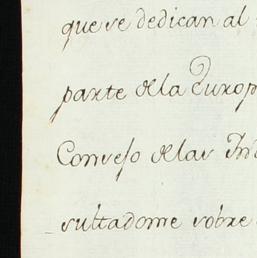 que se dedican al
parte de la Europ
Consejo de las Ind
sultadome sobre